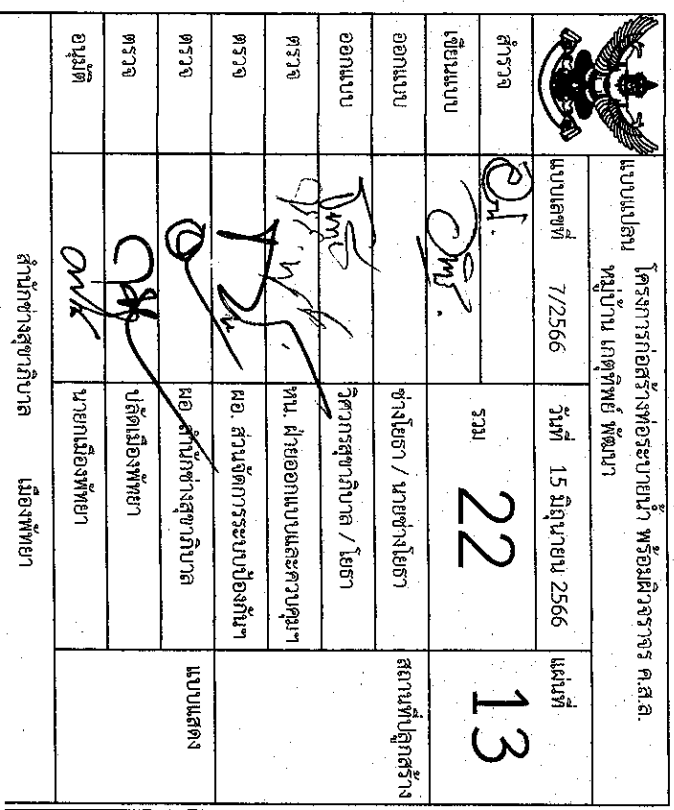 แบบแปลน โครงการก่อสร้างท่อระบายน้ำ พร้อมผิวจราจร ค.ส.ล.
หมู่บ้าน เกตุทิพย์ พัฒนา
แบบเลขที่ 7/2566 วันที่ 15 มิถุนายน 2566 แผ่นที่
สำรวจ รวม 22 13
เขียนแบบ
ออกแบบ ช่างโยธา / นายช่างโยธา สถานที่ปลูกสร้าง
ออกแบบ วิศวกรสุขาภิบาล / โยธา
ตรวจ หน. ฝ่ายออกแบบและควบคุมฯ
ตรวจ ผอ. ส่วนจัดการระบบป้องกันฯ
ตรวจ ผอ. สำนักช่างสุขาภิบาล แบบแสดง
ตรวจ ปลัดเมืองพัทยา
อนุมัติ นายกเมืองพัทยา
สำนักช่างสุขาภิบาล เมืองพัทยา